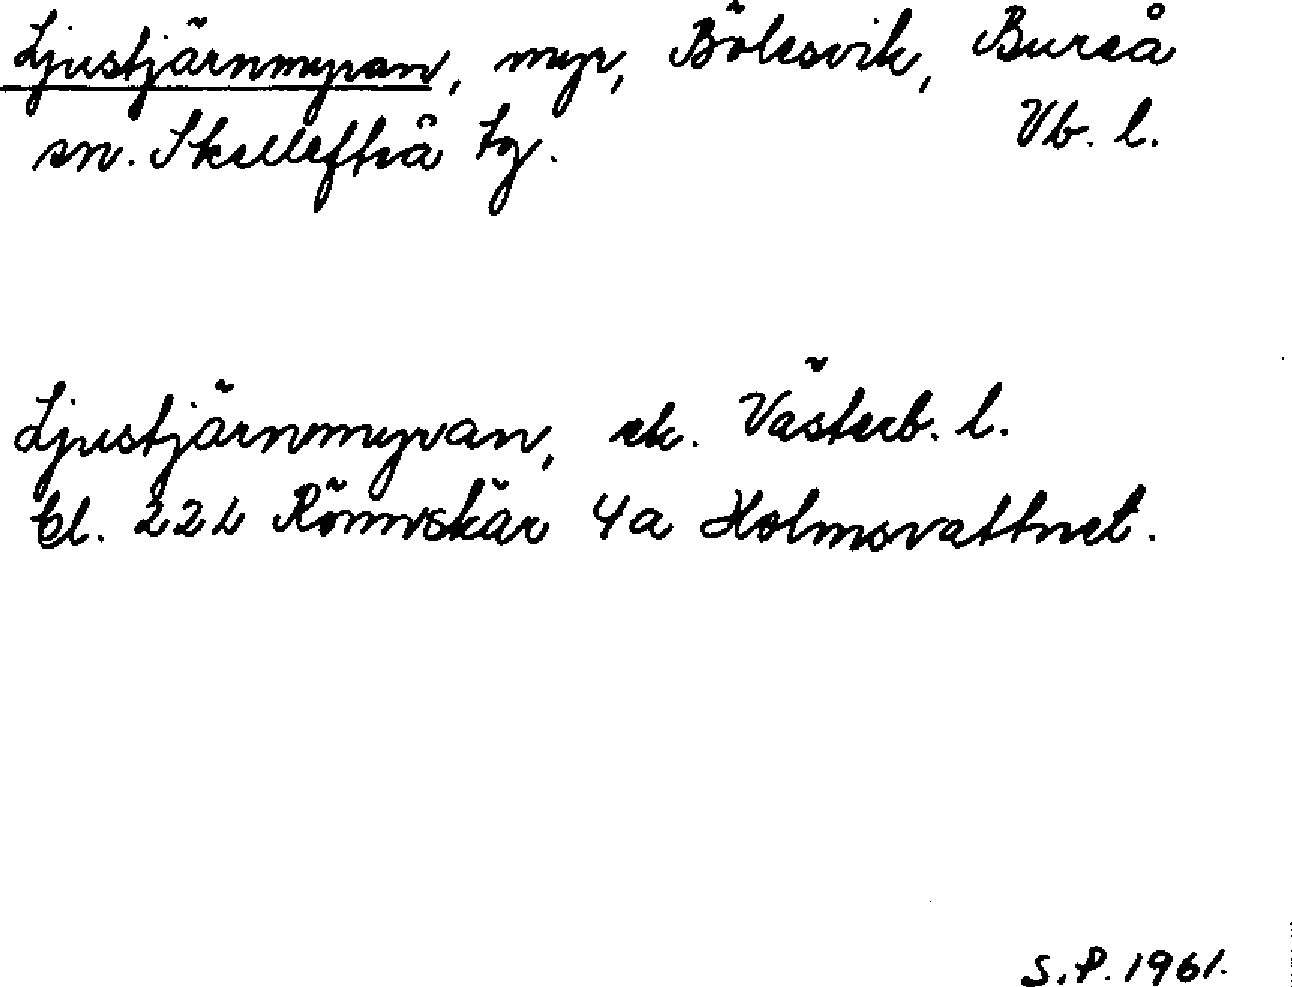 Ljustjärnmyran, myr, Bölesvik, Bureå
sn. Skellefteå tg. Vb. l.
Ljustjärnmyran, ek. Västerb. l.
bl. 22 L Rönnskär 4a Holmsvattnet.
S.P. 1961.